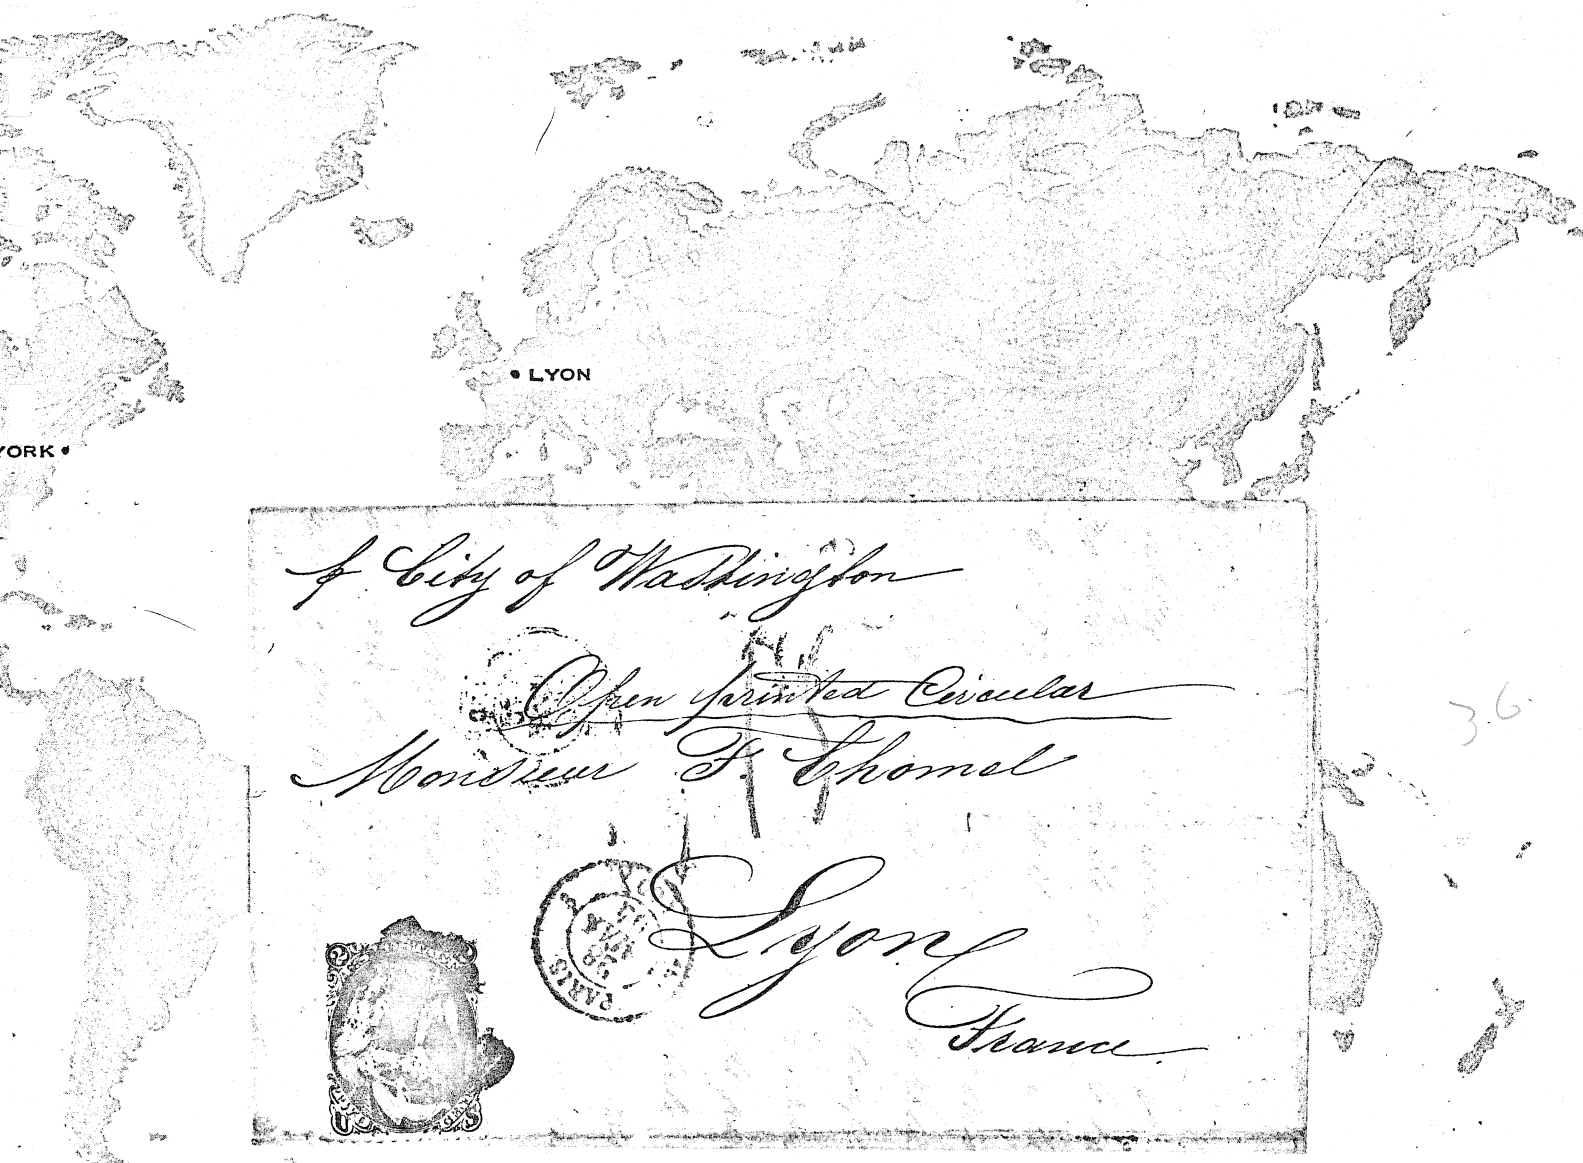 LYON
YORK
p City of Washington
Open printed Circular
Monsieur F. Chomel
Lyon
France
PARIS
2
U S
3.6.